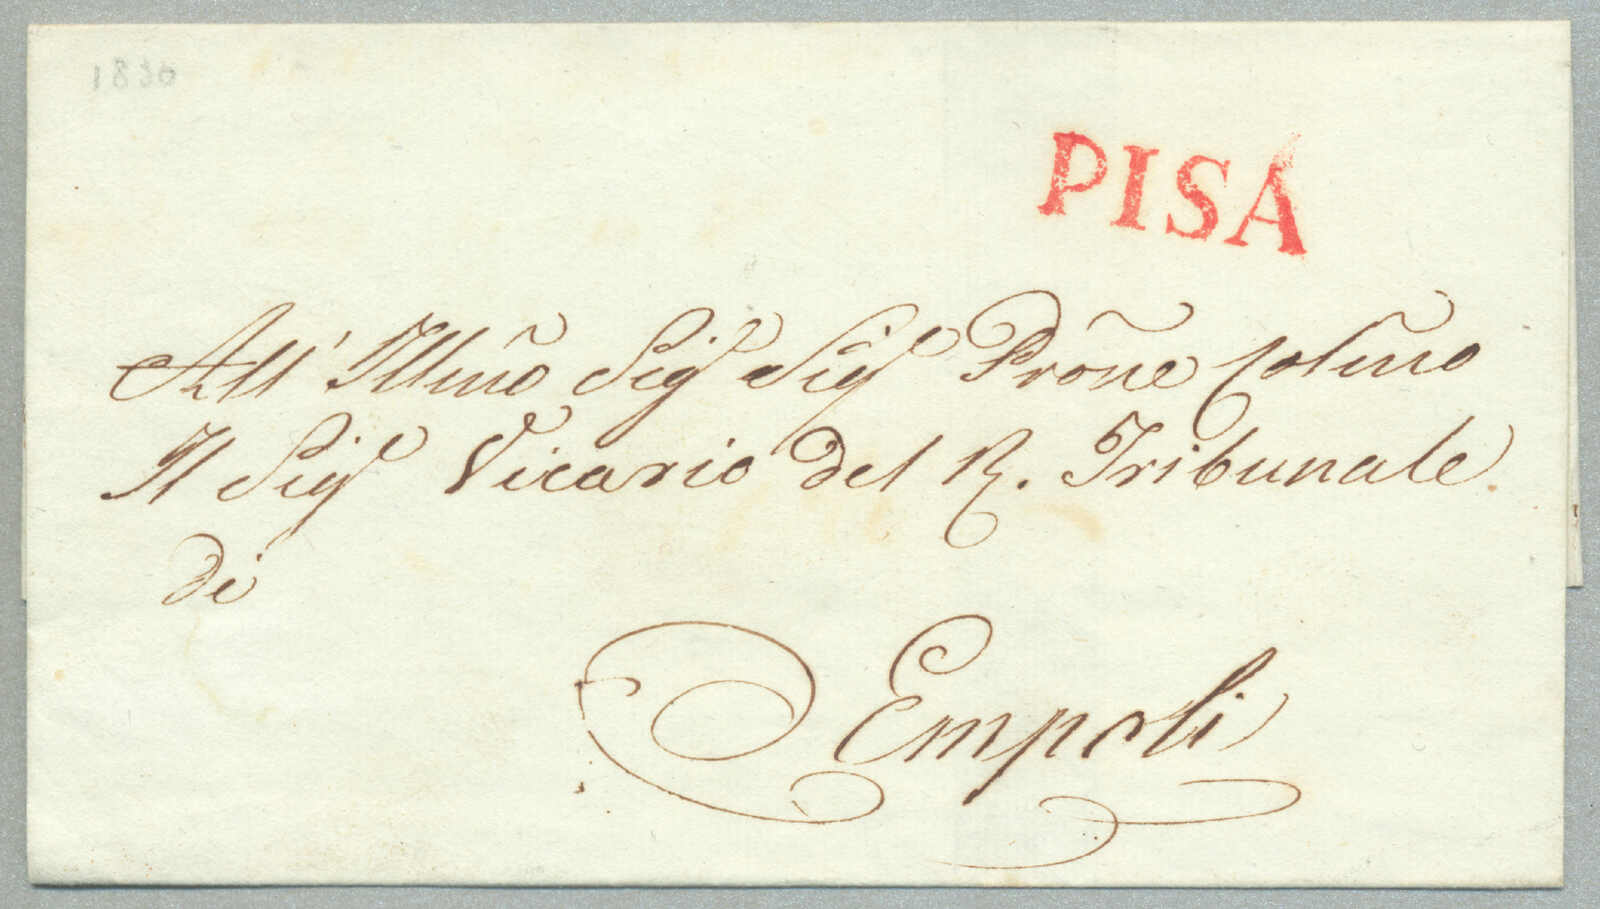 1830
PISA
All' Illmo Sig Sig Prone Colmo
Il Sig Vicario del R. Tribunale
di
Empoli